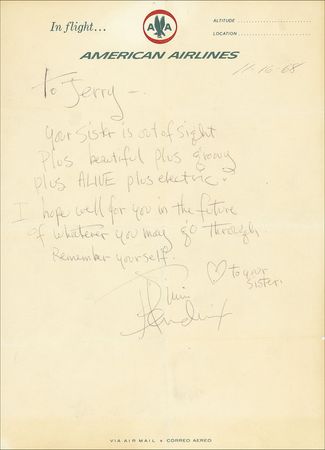 In flight...
AA
ALTITUDE
LOCATION
AMERICAN AIRLINES
11-16-68
To Jerry —
Your Sister is out of sight
Plus beautiful plus groovy
plus ALIVE plus electric.
I hope well for you in the future
of whatever you may go through.
Remember yourself.
♡ to your
sister.
Jimi
Hendrix
VIA AIR MAIL • CORREO AEREO